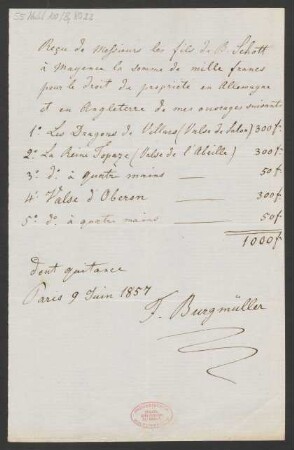 Reçu de Messieurs les fils de B. Schott
à Mayence la somme de mille francs
pour le droit de propriété en Allemagne
et en Angleterre de mes ouvrages suivants
1° Les Dragons de Villars (Valse de Salon) 300f.
2° La Reine Topaze (Valse de l'Abeille) 300f.
3° d° à quatre mains — 50f.
4° Valse d'Oberon — 300f.
5° d° à quatre mains — 50f.
1000f.
dont quitance
Paris 9 Juin 1857
F. Burgmüller